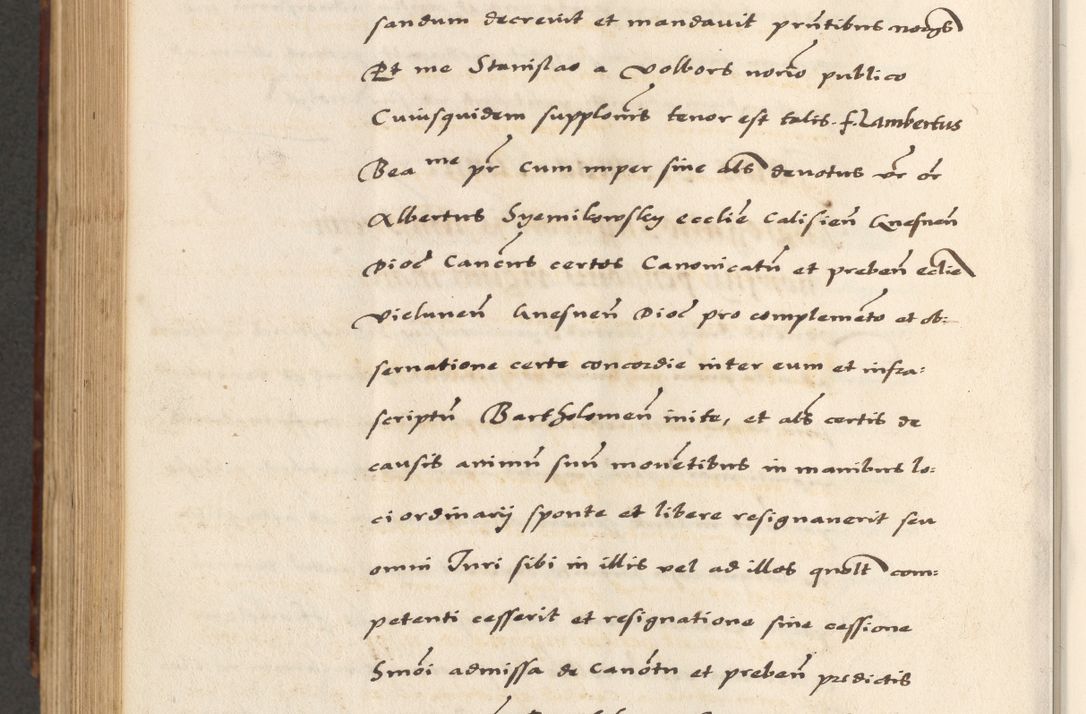 sandum decrevit et mandavit pntibus nobis
Et me Stanislao a Volbors norio publico
Cuiusquidem supplonis tenor est talis. f. Lambertus
Bea me pr cum nuper sive als devotus vr or
Albertus Syemikowsky ecclie Calisien Gnesnen
Dioc Cancus certos Canonicatu et preben eclie
Vielunen Gnesnen Dioc pro complemeto et ob:
servatione certe concordie inter eum et infra:
scriptu Bartholomeu inite, et als certis de
causis animu suu movetibus in manibus lo:
ci ordinarij sponte et libere resignaverit seu
omni Iuri sibi in illis vel ad illos quolt com:
petenti cesserit et resignatione sive cessione
Smoi admissa de Canotu et preben predictis